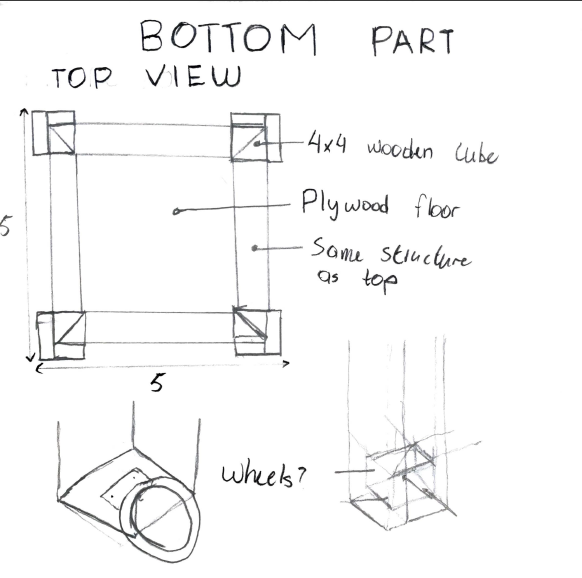 BOTTOM PART
TOP VIEW
4x4 wooden cube
Plywood floor
Same structure
as top
5
5
Wheels?